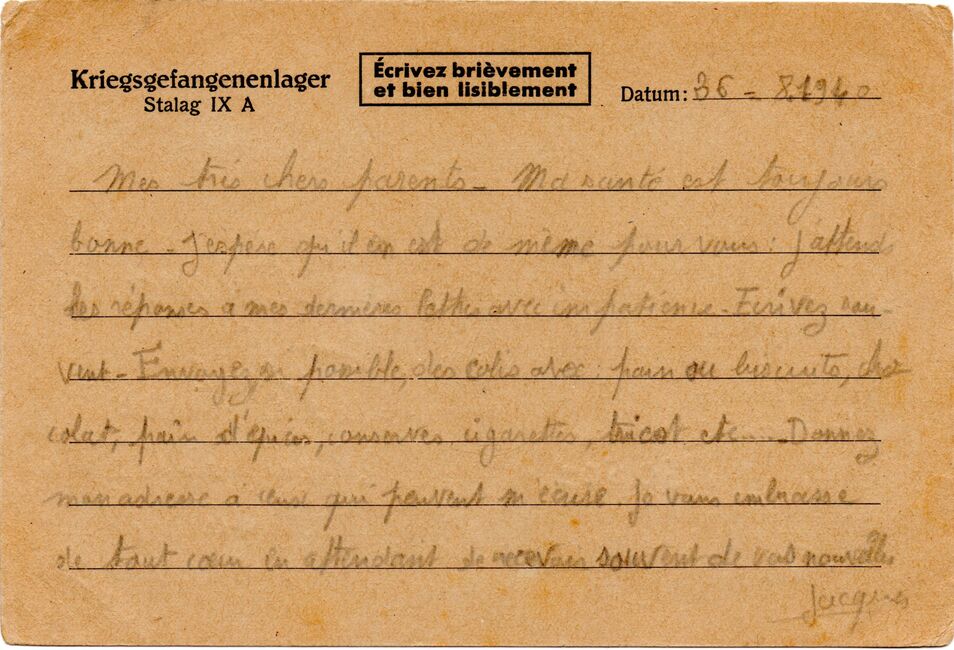 Kriegsgefangenenlager
Stalag IX A
Écrivez brièvement
et bien lisiblement
Datum: 8.1940
Mes très chers parents - Ma santé est toujours
bonne - J'espère qu'il en est de même pour vous : j'attends
les réponses à mes dernières lettres avec impatience - Ecrivez sou-
vent - Envoyez, si possible, des colis avec : pain ou biscuits, cho
colat, pain d'épices, conserves, cigarettes, tricot etc.... - Donnez
mon adresse à ceux qui peuvent m'écrire. Je vous embrasse
de tout cœur en attendant de recevoir souvent de vos nouvelles
Jacques